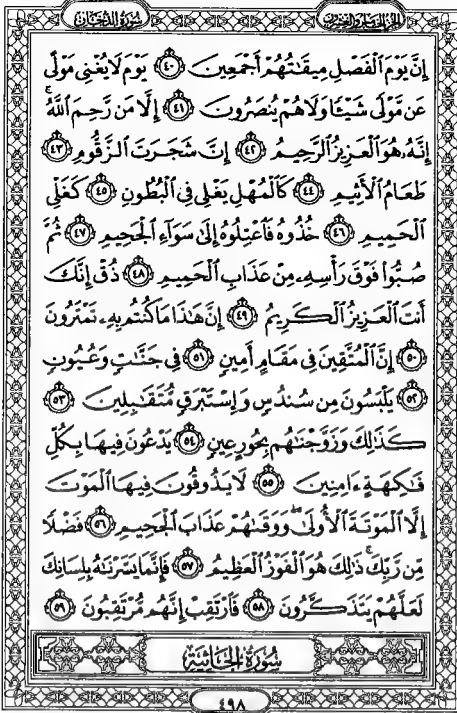 سُورَةُ الدُّخَانِ
الجُزءُ الخَامِسُ وَالعِشْرُونَ
إِنَّ يَوْمَ ٱلْفَصْلِ مِيقَٰتُهُمْ أَجْمَعِينَ ﴿٤٠﴾ يَوْمَ لَا يُغْنِى مَوْلًى
عَن مَّوْلًى شَيْـًٔا وَلَا هُمْ يُنصَرُونَ ﴿٤١﴾ إِلَّا مَن رَّحِمَ ٱللَّهُ ۚ
إِنَّهُۥ هُوَ ٱلْعَزِيزُ ٱلرَّحِيمُ ﴿٤٢﴾ إِنَّ شَجَرَتَ ٱلزَّقُّومِ ﴿٤٣﴾
طَعَامُ ٱلْأَثِيمِ ﴿٤٤﴾ كَٱلْمُهْلِ يَغْلِى فِى ٱلْبُطُونِ ﴿٤٥﴾ كَغَلْىِ
ٱلْحَمِيمِ ﴿٤٦﴾ خُذُوهُ فَٱعْتِلُوهُ إِلَىٰ سَوَآءِ ٱلْجَحِيمِ ﴿٤٧﴾ ثُمَّ
صُبُّوا۟ فَوْقَ رَأْسِهِۦ مِنْ عَذَابِ ٱلْحَمِيمِ ﴿٤٨﴾ ذُقْ إِنَّكَ
أَنتَ ٱلْعَزِيزُ ٱلْكَرِيمُ ﴿٤٩﴾ إِنَّ هَٰذَا مَا كُنتُم بِهِۦ تَمْتَرُونَ
﴿٥٠﴾ إِنَّ ٱلْمُتَّقِينَ فِى مَقَامٍ أَمِينٍ ﴿٥١﴾ فِى جَنَّٰتٍ وَعُيُونٍ
﴿٥٢﴾ يَلْبَسُونَ مِن سُندُسٍ وَإِسْتَبْرَقٍ مُّتَقَٰبِلِينَ ﴿٥٣﴾
كَذَٰلِكَ وَزَوَّجْنَٰهُم بِحُورٍ عِينٍ ﴿٥٤﴾ يَدْعُونَ فِيهَا بِكُلِّ
فَٰكِهَةٍ ءَامِنِينَ ﴿٥٥﴾ لَا يَذُوقُونَ فِيهَا ٱلْمَوْتَ
إِلَّا ٱلْمَوْتَةَ ٱلْأُولَىٰ ۖ وَوَقَىٰهُمْ عَذَابَ ٱلْجَحِيمِ ﴿٥٦﴾ فَضْلًا
مِّن رَّبِّكَ ۚ ذَٰلِكَ هُوَ ٱلْفَوْزُ ٱلْعَظِيمُ ﴿٥٧﴾ فَإِنَّمَا يَسَّرْنَٰهُ بِلِسَانِكَ
لَعَلَّهُمْ يَتَذَكَّرُونَ ﴿٥٨﴾ فَٱرْتَقِبْ إِنَّهُم مُّرْتَقِبُونَ ﴿٥٩﴾
سُورَةُ الجَاثِيَةِ
٤٩٨